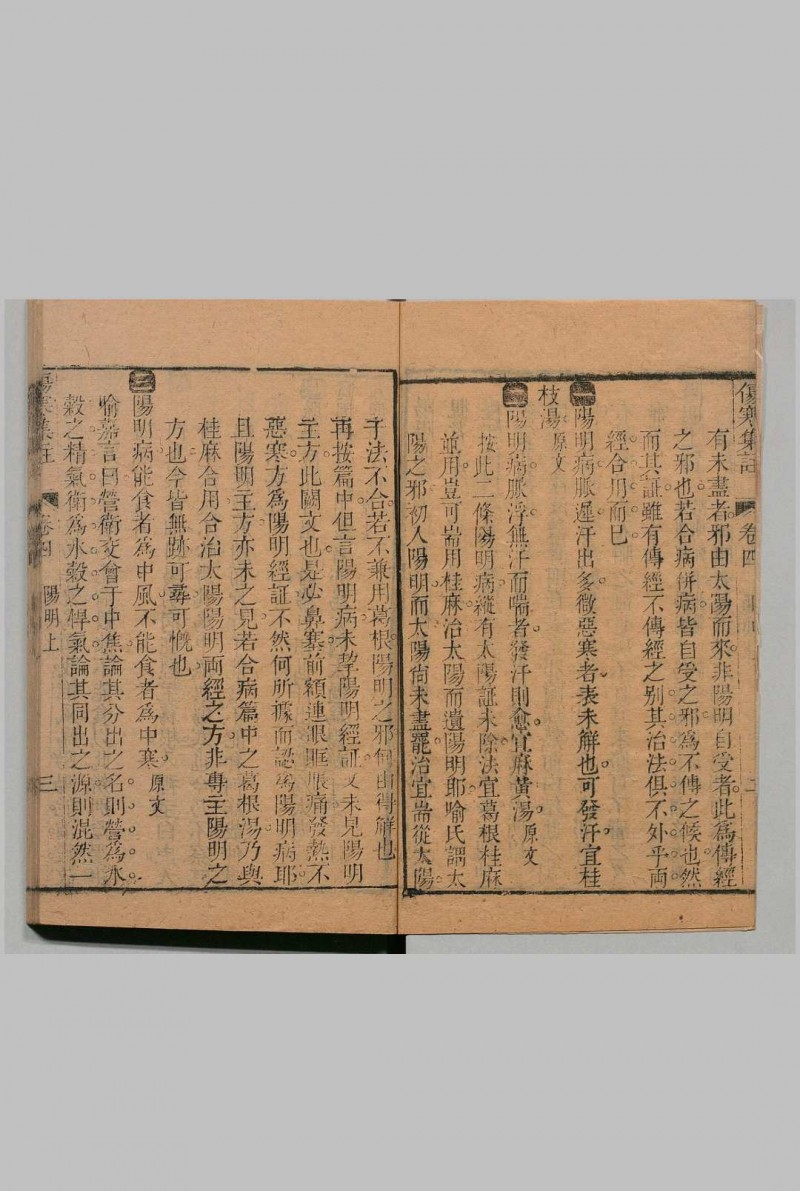 傷寒集註 卷四 二
有未盡者邪由太陽而來非陽明自受者此為傳經
之邪也若合病併病皆自受之邪為不傳之候也然
而其証雖有傳經不傳經之别其治法俱不外乎両
經合用而已
一 陽明病脈遲汗出多微惡寒者表未解也可發汗宜桂
枝湯 原文
二 陽明病脈浮無汗而喘者發汗則愈宜麻黃湯 原文
按此二條陽明病縱有太陽証未除法宜葛根桂麻
並用豈可耑用桂麻治太陽而遺陽明耶喻氏謂太
陽之邪初入陽明而太陽尚未盡罷治宜耑從太陽
于法不合若不兼用葛根陽明之邪何由得解也
再按篇中但言陽明病未挈陽明經証又未見陽明
主方此闕文也是必鼻塞前額連眼眶脹痛發熱不
惡寒方為陽明經証不然何所據而認為陽明病耶
且陽明主方亦未之見若合病篇中之葛根湯乃與
桂麻合用合治太陽陽明両經之方非專主陽明之
方也今皆無跡可尋可慨也
三 陽明病能食者為中風不能食者為中寒 原文
喻嘉言曰營衛交會于中焦論其分出之名則營為水
穀之精氣衛為水穀之悍氣論其同出之源則混然一
傷寒集註 卷四 陽明上 三